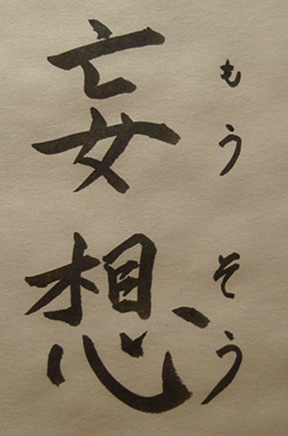 妄想
もうそう